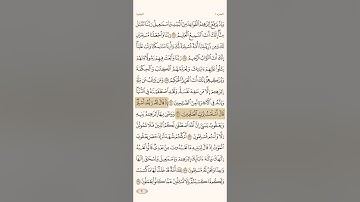 وَإِذْ يَرْفَعُ إِبْرَٰهِـۧمُ ٱلْقَوَاعِدَ مِنَ ٱلْبَيْتِ وَإِسْمَٰعِيلُ رَبَّنَا تَقَبَّلْ
مِنَّآ إِنَّكَ أَنتَ ٱلسَّمِيعُ ٱلْعَلِيمُ ۝ رَبَّنَا وَٱجْعَلْنَا مُسْلِمَيْنِ
لَكَ وَمِن ذُرِّيَّتِنَآ أُمَّةً مُّسْلِمَةً لَّكَ وَأَرِنَا مَنَاسِكَنَا وَتُبْ عَلَيْنَآ
إِنَّكَ أَنتَ ٱلتَّوَّابُ ٱلرَّحِيمُ ۝ رَبَّنَا وَٱبْعَثْ فِيهِمْ رَسُولًا مِّنْهُمْ
يَتْلُوا۟ عَلَيْهِمْ ءَايَٰتِكَ وَيُعَلِّمُهُمُ ٱلْكِتَٰبَ وَٱلْحِكْمَةَ
وَيُزَكِّيهِمْ إِنَّكَ أَنتَ ٱلْعَزِيزُ ٱلْحَكِيمُ ۝ وَمَن يَرْغَبُ عَن مِّلَّةِ
إِبْرَٰهِـۧمَ إِلَّا مَن سَفِهَ نَفْسَهُۥ وَلَقَدِ ٱصْطَفَيْنَٰهُ فِى ٱلدُّنْيَا
وَإِنَّهُۥ فِى ٱلْءَاخِرَةِ لَمِنَ ٱلصَّٰلِحِينَ ۝ إِذْ قَالَ لَهُۥ رَبُّهُۥٓ أَسْلِمْ
قَالَ أَسْلَمْتُ لِرَبِّ ٱلْعَٰلَمِينَ ۝ وَوَصَّىٰ بِهَآ إِبْرَٰهِـۧمُ بَنِيهِ
وَيَعْقُوبُ يَٰبَنِىَّ إِنَّ ٱللَّهَ ٱصْطَفَىٰ لَكُمُ ٱلدِّينَ فَلَا تَمُوتُنَّ
إِلَّا وَأَنتُم مُّسْلِمُونَ ۝ أَمْ كُنتُمْ شُهَدَآءَ إِذْ حَضَرَ يَعْقُوبَ
ٱلْمَوْتُ إِذْ قَالَ لِبَنِيهِ مَا تَعْبُدُونَ مِنۢ بَعْدِى قَالُوا۟ نَعْبُدُ
إِلَٰهَكَ وَإِلَٰهَ ءَابَآئِكَ إِبْرَٰهِـۧمَ وَإِسْمَٰعِيلَ وَإِسْحَٰقَ إِلَٰهًا
وَٰحِدًا وَنَحْنُ لَهُۥ مُسْلِمُونَ ۝ تِلْكَ أُمَّةٌ قَدْ خَلَتْ لَهَا مَا كَسَبَتْ
وَلَكُم مَّا كَسَبْتُمْ وَلَا تُسْـَٔلُونَ عَمَّا كَانُوا۟ يَعْمَلُونَ ۝